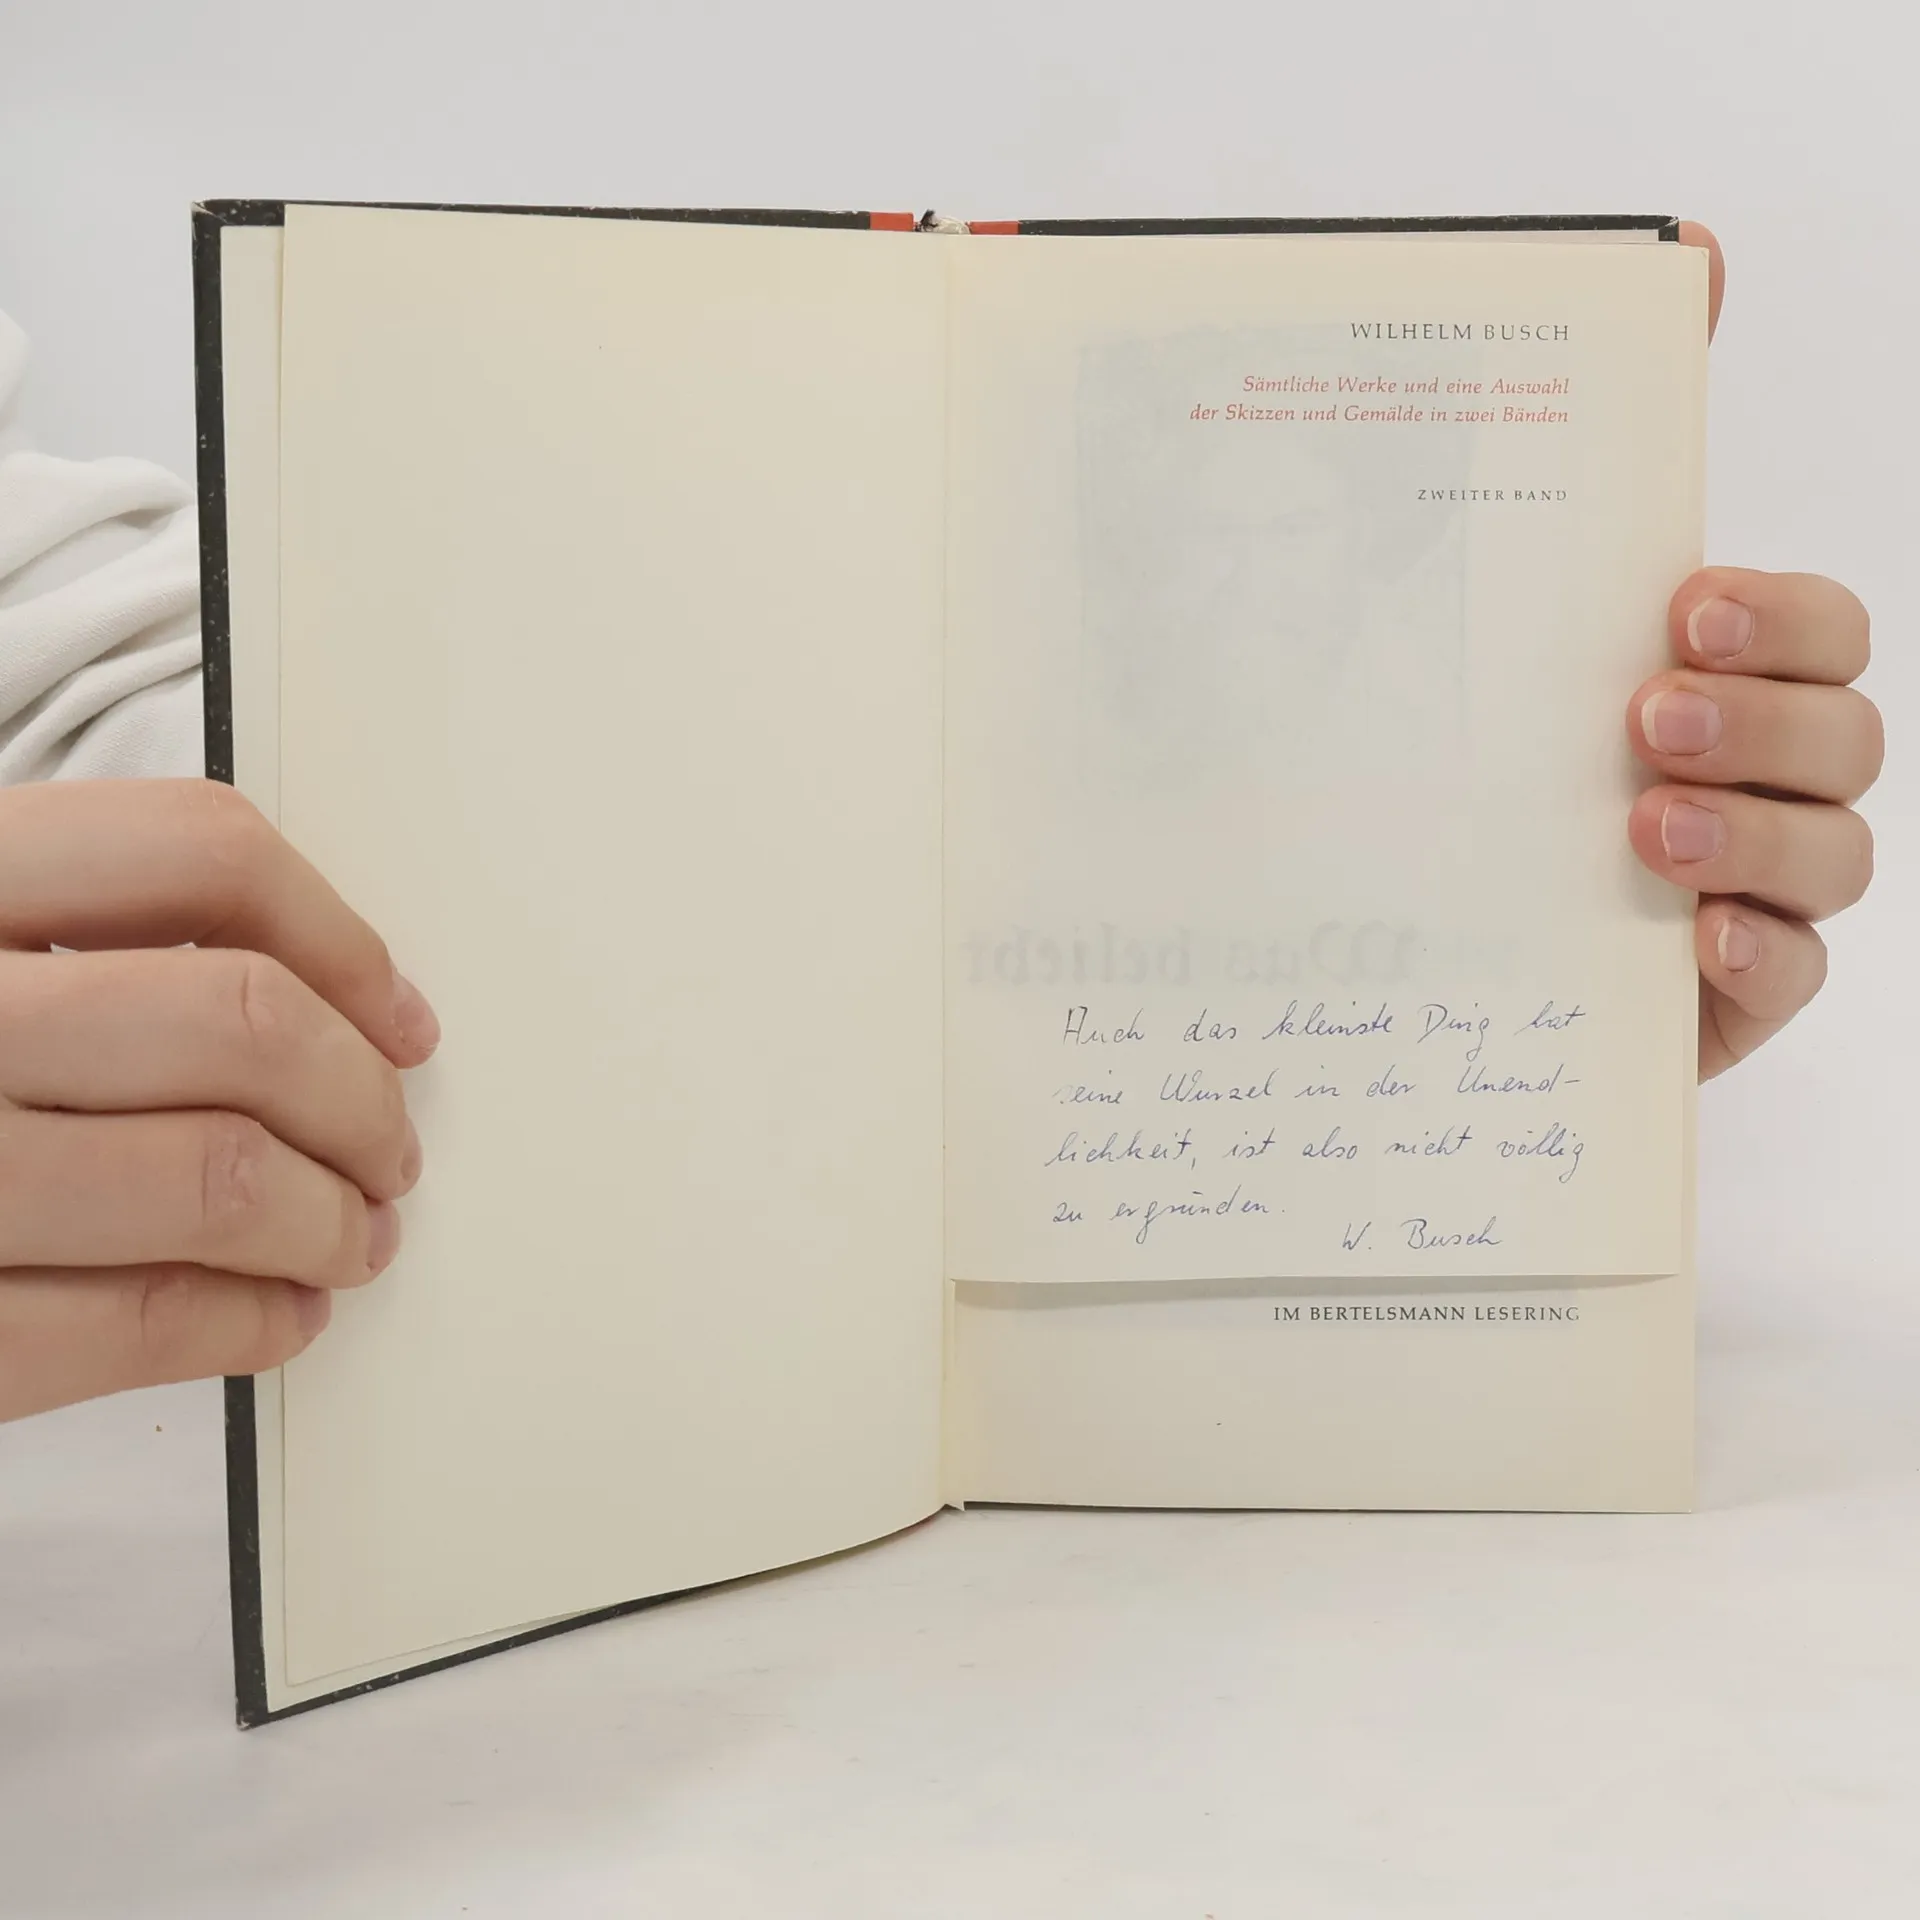 WILHELM BUSCH
Sämtliche Werke und eine Auswahl
der Skizzen und Gemälde in zwei Bänden
ZWEITER BAND
Was beliebt
Auch das kleinste Ding hat
seine Wurzel in der Unend-
lichkeit, ist also nicht völlig
zu ergründen.
W. Busch
IM BERTELSMANN LESERING